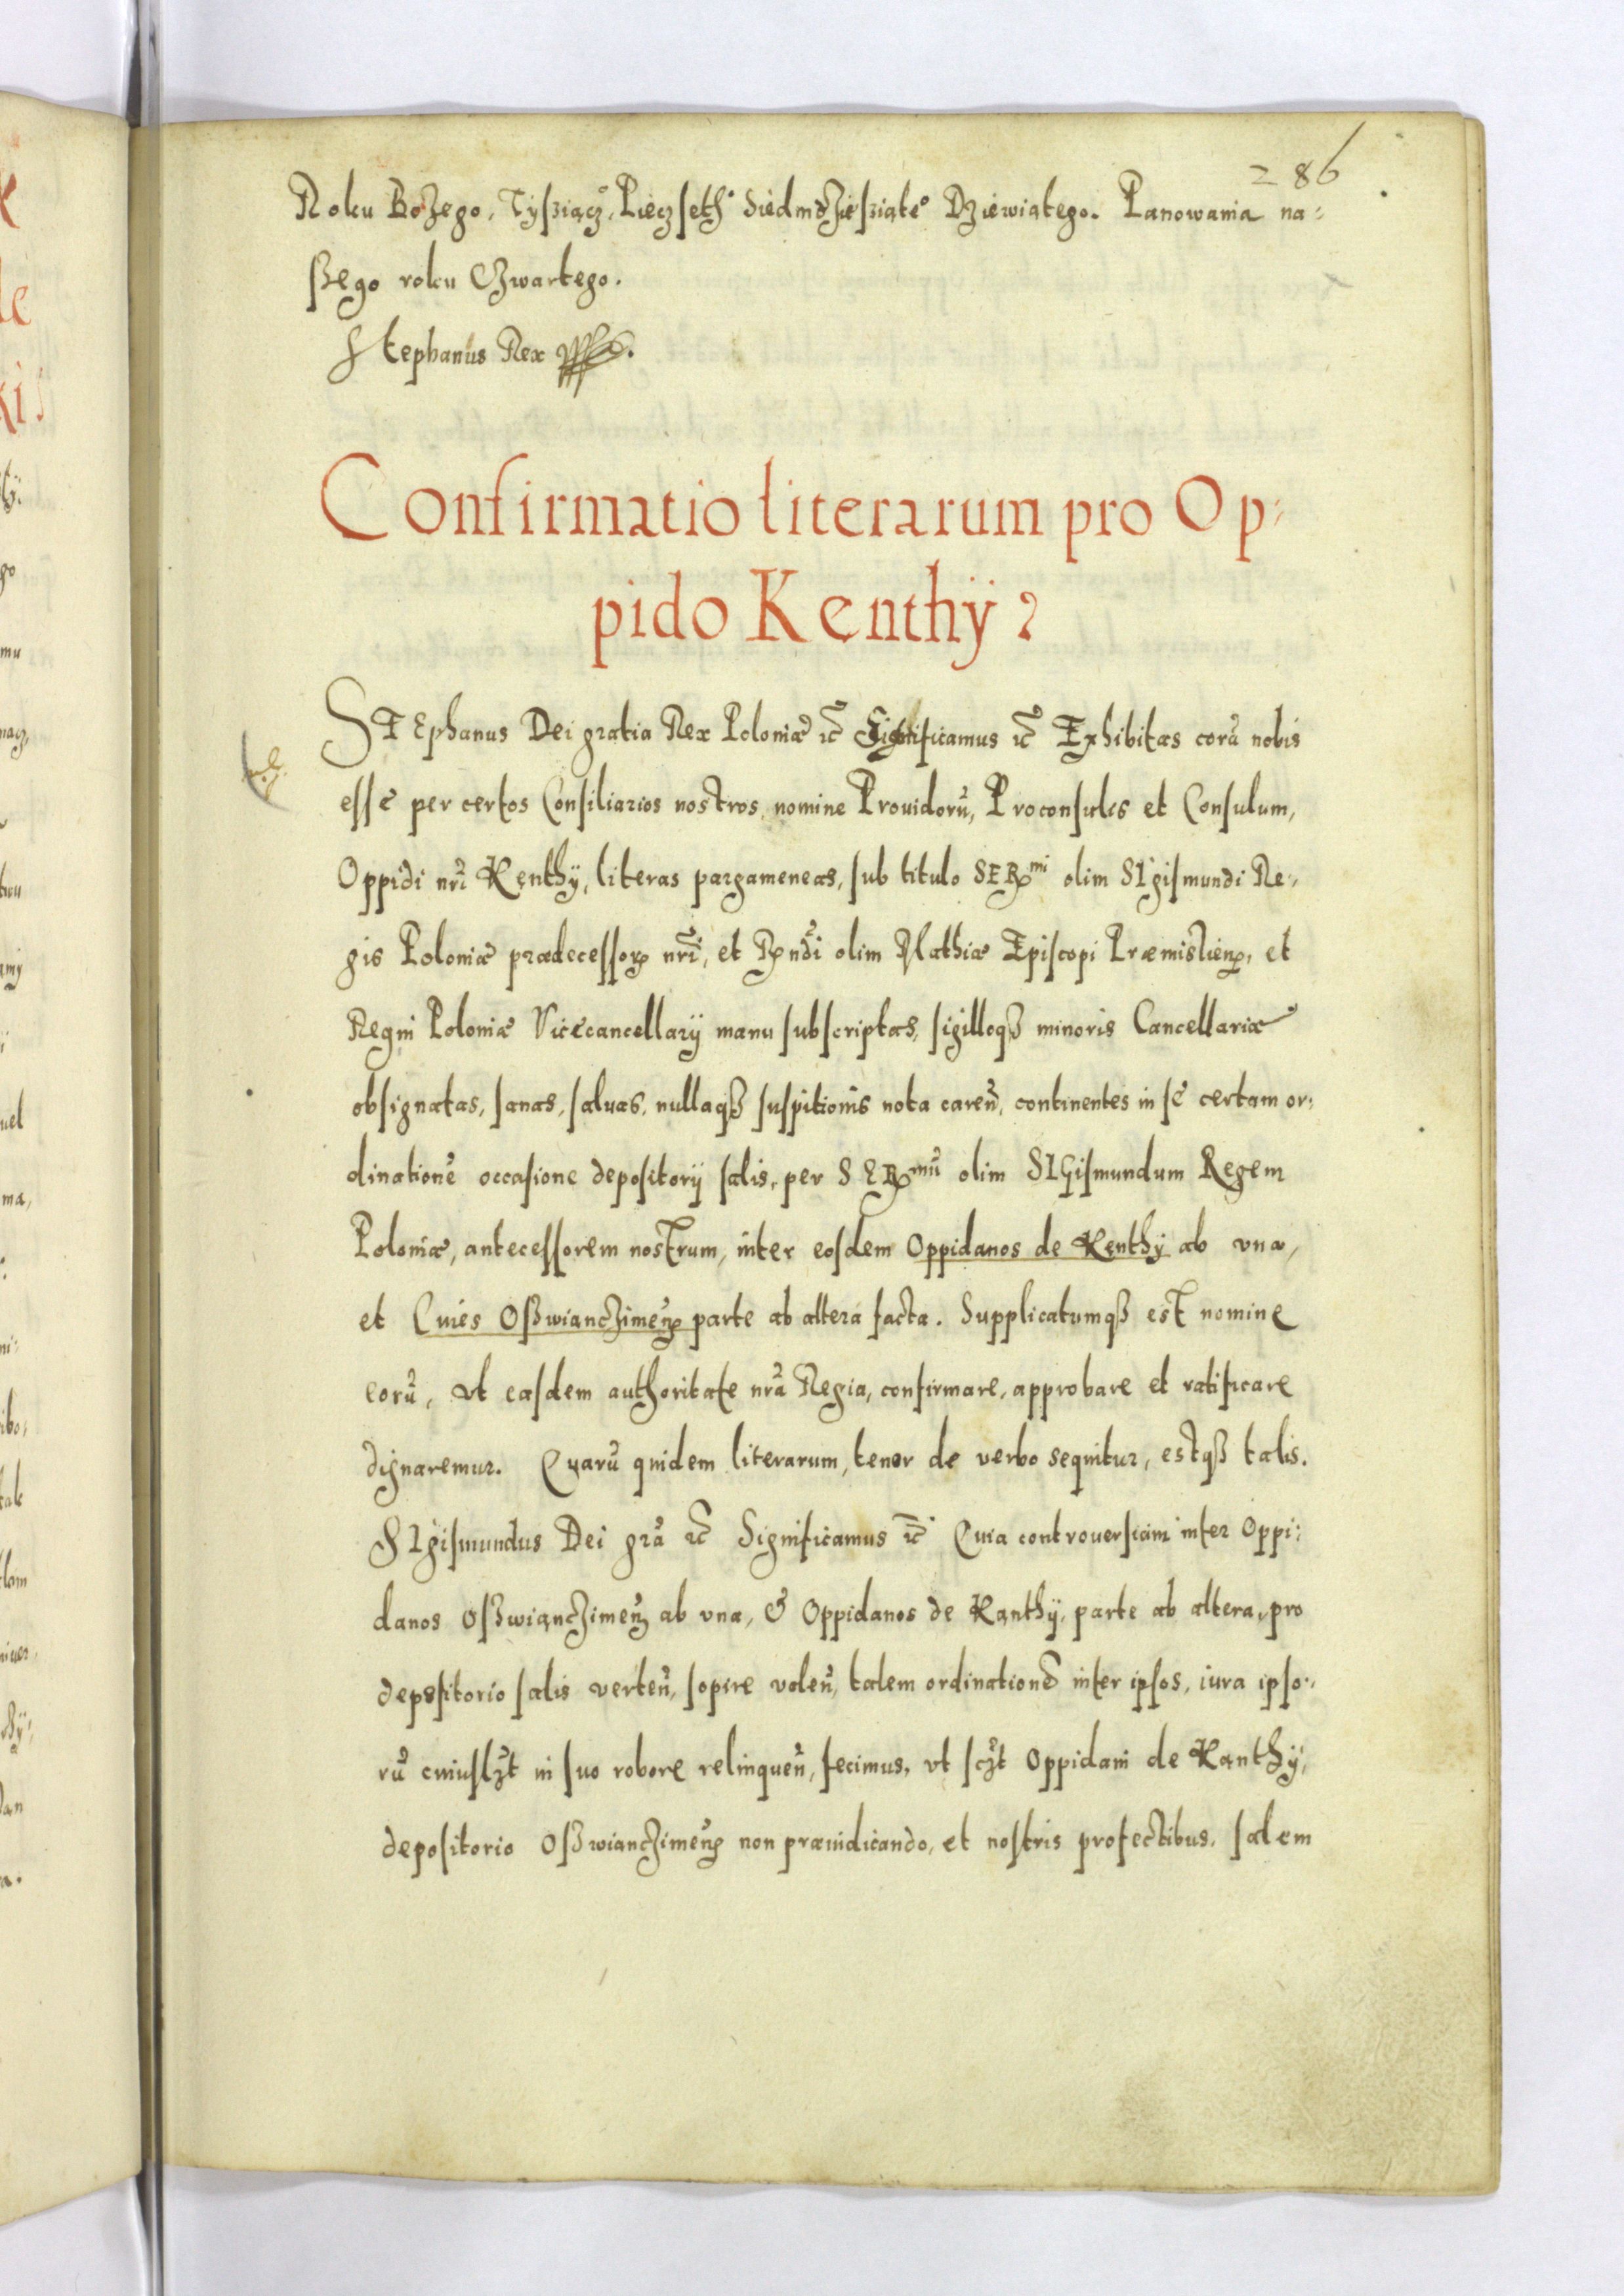 286
Roku Bożego, Tysziącz̊, Pieczsethͦ Siedmdziesząteͦ Dziewiątego. Panowania na:
szego roku Czwartego.
Stephanus Rex
Confirmatio literarum pro Op:
pido Kenthÿ
STEphanus Dei gratia Rex Poloniæ etc̃ Significamus etc̃ Exhibitas corã nobis
esse per certos Consiliarios nostros, nomine Prouidorũ, Proconsulis et Consulum,
Oppidi nr̃i Kenthÿ, literas pargameneas, sub titulo SERmi olim SIgismundi Re:
gis Poloniæ prædecessoꝝ nr̃i, et Rndi olim Mathiæ Episcopi Præmislienꝝ, et
Regni Poloniæ Vicecancellarÿ manu subscriptas, sigilloqß minoris Cancellariæ
obsignatas, sanas, saluas, nullaqß suspitionis nota careñ, continentes in se certam or:
dinationẽ occasione depositorÿ salis, per SERmũ olim SIGismundum Regem
Poloniæ, antecessorem nostrum, inter eosdem Oppidanos de Kenthÿ ab vna,
et Ciues Oßwianczimenꝝ parte ab altera facta. Supplicatumqß est nomine
eorũ, vt easdem authoritate nrã Regia, confirmare, approbare et ratificare
dignaremur. Quarũ quidem literarum, tenor de verbo sequitur, estqß talis.
SIgismundus Dei grã etc̃ Significamus etc̃ Quia controuersiam inter Oppi:
danos Oßwianczimeñ ab vna, & Oppidanos de Kanthÿ, parte ab altera, pro
depositorio salis verteñ, sopire voleñ, talem ordinationẽ inter ipsos, iura ipso:
rũ cuiusꝫt in suo robore relinqueñ, fecimus, vt scꝫt Oppidani de Kanthÿ,
depositorio Oßwianczimenꝝ non præiudicando, et nostris profectibus, salem